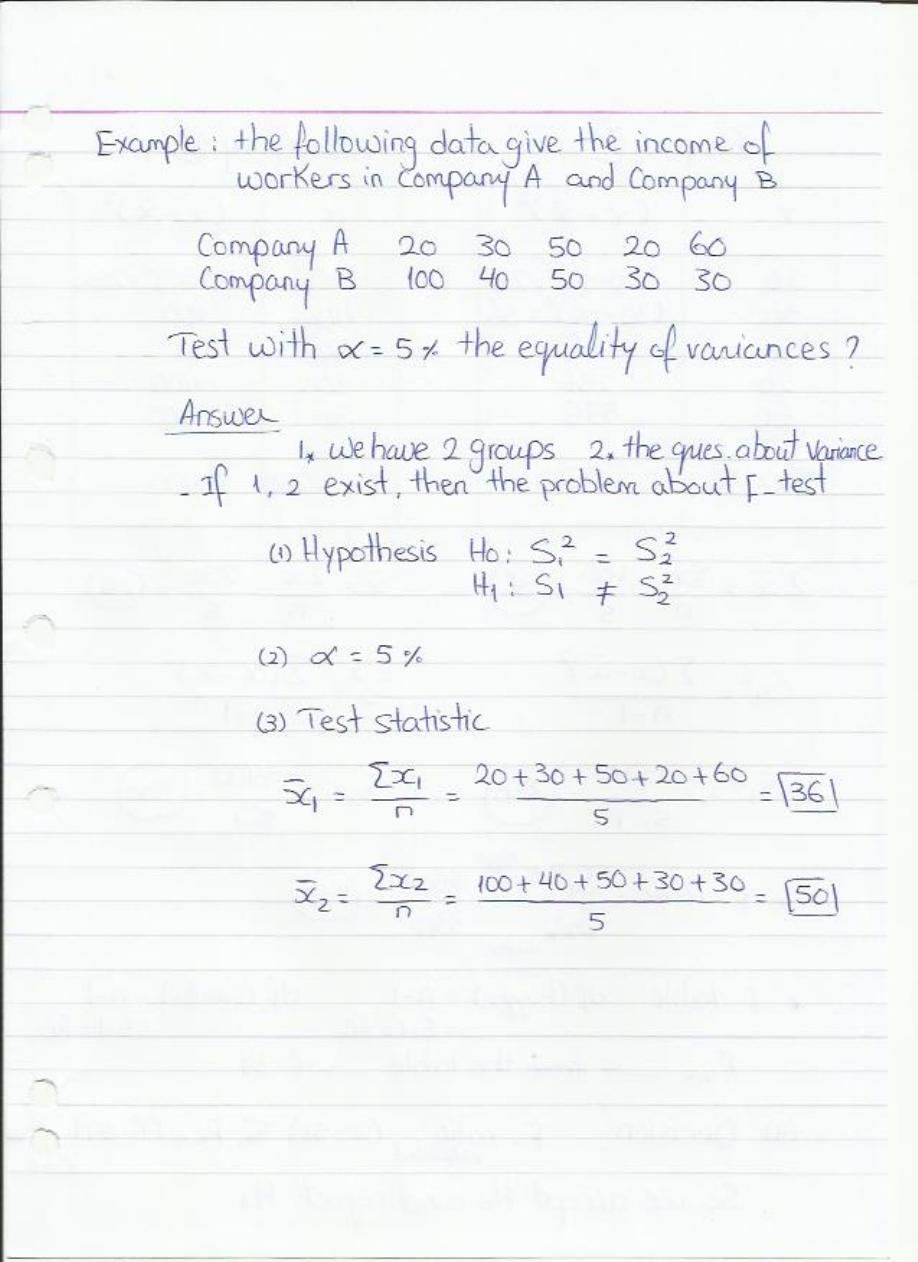 Example : the following data give the income of
workers in Company A and Company B
Company A 20 30 50 20 60
Company B 100 40 50 30 30
Test with α = 5 % the equality of variances ?
Answer
1* we have 2 groups 2* the ques. about Variance
- If 1, 2 exist, then the problem about F-test
(1) Hypothesis H₀ : S₁² = S₂²
H₁ : S₁ ≠ S₂²
(2) α = 5 %
(3) Test statistic
x̄₁ = Σx₁/n = (20+30+50+20+60)/5 = 36
x̄₂ = Σx₂/n = (100+40+50+30+30)/5 = 50